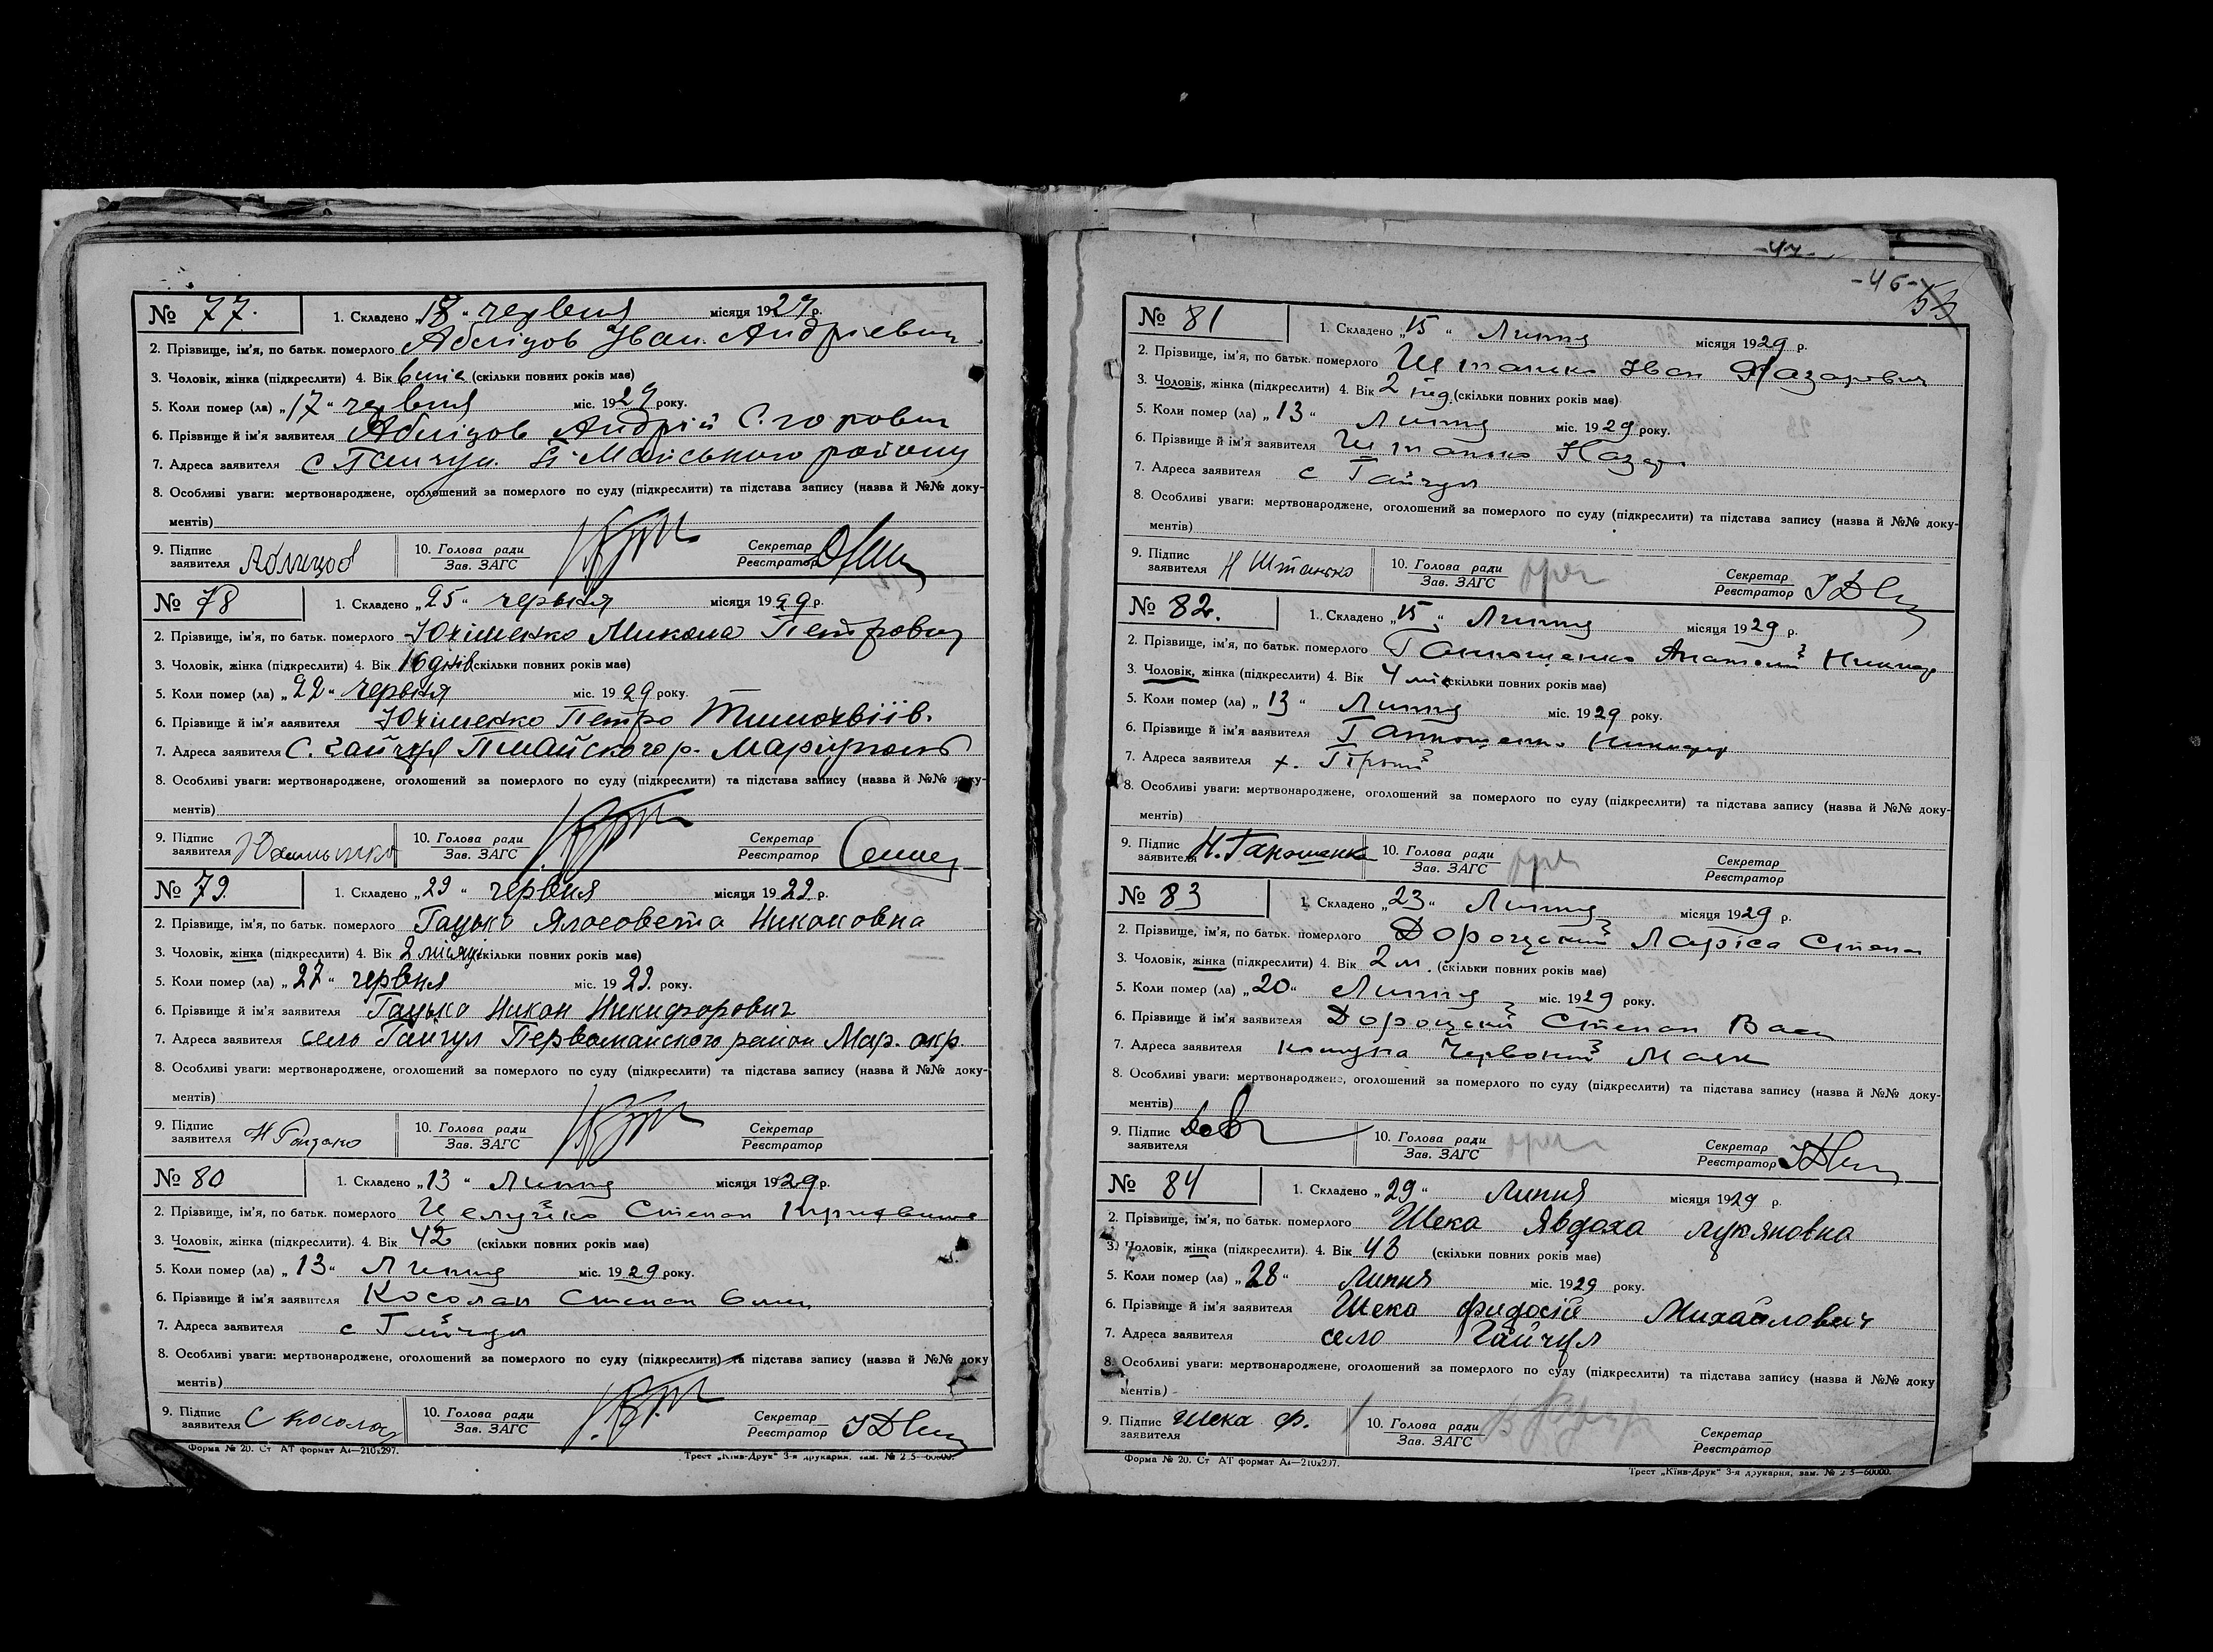 № 77. 1. Складено „18“ червня місяця 1929 р.
2. Прізвище, ім'я, по батьк. померлого Аблізов Іван Андріевич
3. Чоловік, жінка (підкреслити) 4. Вік (скільки повних років має)
5. Коли помер (ла) „17“ червня міс. 1929 року.
6. Прізвище й ім'я заявителя Аблізов Андрій
7. Адреса заявителя с Гайчул Майського району
8. Особливі уваги: мертвонароджене, оголошений за померлого по суду (підкреслити) та підстава запису (назва й №№ доку-
ментів)
9. Підпис заявителя Аблизов 10. Голова ради Секретар
Зав. ЗАГС Реєстратор
№ 78 1. Складено „25“ червня місяця 1929 р.
2. Прізвище, ім'я, по батьк. померлого Юхіменко Микола Петрович
3. Чоловік, жінка (підкреслити) 4. Вік 16 днів (скільки повних років має)
5. Коли помер (ла) „22“ червня міс. 1929 року.
6. Прізвище й ім'я заявителя Юхіменко Петро Тимохвіів.
7. Адреса заявителя С. Гайчул Пмайского р.
8. Особливі уваги: мертвонароджене, оголошений за померлого по суду (підкреслити) та підстава запису (назва й №№ доку-
ментів)
9. Підпис заявителя 10. Голова ради Секретар
Зав. ЗАГС Реєстратор
№ 79. 1. Складено „29“ червня місяця 1929 р.
2. Прізвище, ім'я, по батьк. померлого Гацько Ялосовета Никоновна
3. Чоловік, жінка (підкреслити) 4. Вік 2 місяці (скільки повних років має)
5. Коли помер (ла) „27“ червня міс. 1929. року.
6. Прізвище й ім'я заявителя Гацько Никон Никифорович
7. Адреса заявителя село Гайчул Первомайского район Мар. окр
8. Особливі уваги: мертвонароджене, оголошений за померлого по суду (підкреслити) та підстава запису (назва й №№ доку-
ментів)
9. Підпис заявителя Н Гацько 10. Голова ради Секретар
Зав. ЗАГС Реєстратор
№ 80 1. Складено „13“ Липня місяця 1929 р.
2. Прізвище, ім'я, по батьк. померлого Степан
3. Чоловік, жінка (підкреслити). 4. Вік 42 (скільки повних років має)
5. Коли помер (ла) „13“ Липня міс. 1929 року.
6. Прізвище й ім'я заявителя Косолап Степан
7. Адреса заявителя с Гайчул
8. Особливі уваги: мертвонароджене, оголошений за померлого по суду (підкреслити) та підстава запису (назва й №№ доку
ментів)
9. Підпис заявителя С Косолап 10. Голова ради Секретар
Зав. ЗАГС Реєстратор
Форма № 20. Ст АТ формат А4—210x297. Трест „Київ-Друк“ 3-я друкарня, зам. № 2 5—60000.
-47-
-46-
53
№ 81 1. Складено „15“ Липня місяця 1929 р.
2. Прізвище, ім'я, по батьк. померлого Штанько Іван Назарович
3. Чоловік, жінка (підкреслити) 4. Вік 2 (скільки повних років має)
5. Коли помер (ла) „13“ Липня міс. 1929 року.
6. Прізвище й ім'я заявителя Штанько Назар
7. Адреса заявителя с Гайчул
8. Особливі уваги: мертвонароджене, оголошений за померлого по суду (підкреслити) та підстава запису (назва й №№ доку-
ментів)
9. Підпис заявителя Н Штанько 10. Голова ради Секретар
Зав. ЗАГС Реєстратор
№ 82. 1. Складено „15“ Липня місяця 1929 р.
2. Прізвище, ім'я, по батьк. померлого Анатолий
3. Чоловік, жінка (підкреслити) 4. Вік 4 (скільки повних років має)
5. Коли помер (ла) „13“ Липня міс. 1929 року.
6. Прізвище й ім'я заявителя
7. Адреса заявителя х.
8. Особливі уваги: мертвонароджене, оголошений за померлого по суду (підкреслити) та підстава запису (назва й №№ доку-
ментів)
9. Підпис заявителя Н. Ганошенко 10. Голова ради Секретар
Зав. ЗАГС Реєстратор
№ 83 1. Складено „23“ Липня місяця 1929 р.
2. Прізвище, ім'я, по батьк. померлого Лариса Степа
3. Чоловік, жінка (підкреслити) 4. Вік 2 м. (скільки повних років має)
5. Коли помер (ла) „20“ Липня міс. 1929 року.
6. Прізвище й ім'я заявителя Степан Вас
7. Адреса заявителя комуна Червоний Маяк
8. Особливі уваги: мертвонароджене, оголошений за померлого по суду (підкреслити) та підстава запису (назва й №№ доку-
ментів)
9. Підпис заявителя 10. Голова ради Секретар
Зав. ЗАГС Реєстратор
№ 84 1. Складено „29“ Липня місяця 1929 р.
2. Прізвище, ім'я, по батьк. померлого Шека Явдоха Лукяновна
3. Чоловік, жінка (підкреслити). 4. Вік 43 (скільки повних років має)
5. Коли помер (ла) „28“ Липня міс. 1929 року.
6. Прізвище й ім'я заявителя Шека Фидосій Михайлович
7. Адреса заявителя село Гайчул
8. Особливі уваги: мертвонароджене, оголошений за померлого по суду (підкреслити) та підстава запису (назва й №№ доку
ментів)
9. Підпис заявителя Шека Ф. 10. Голова ради Секретар
Зав. ЗАГС Реєстратор
Форма № 20. Ст АТ формат А4—210x297. Трест „Київ-Друк“ 3-я друкарня, зам. № 2 5—60000.